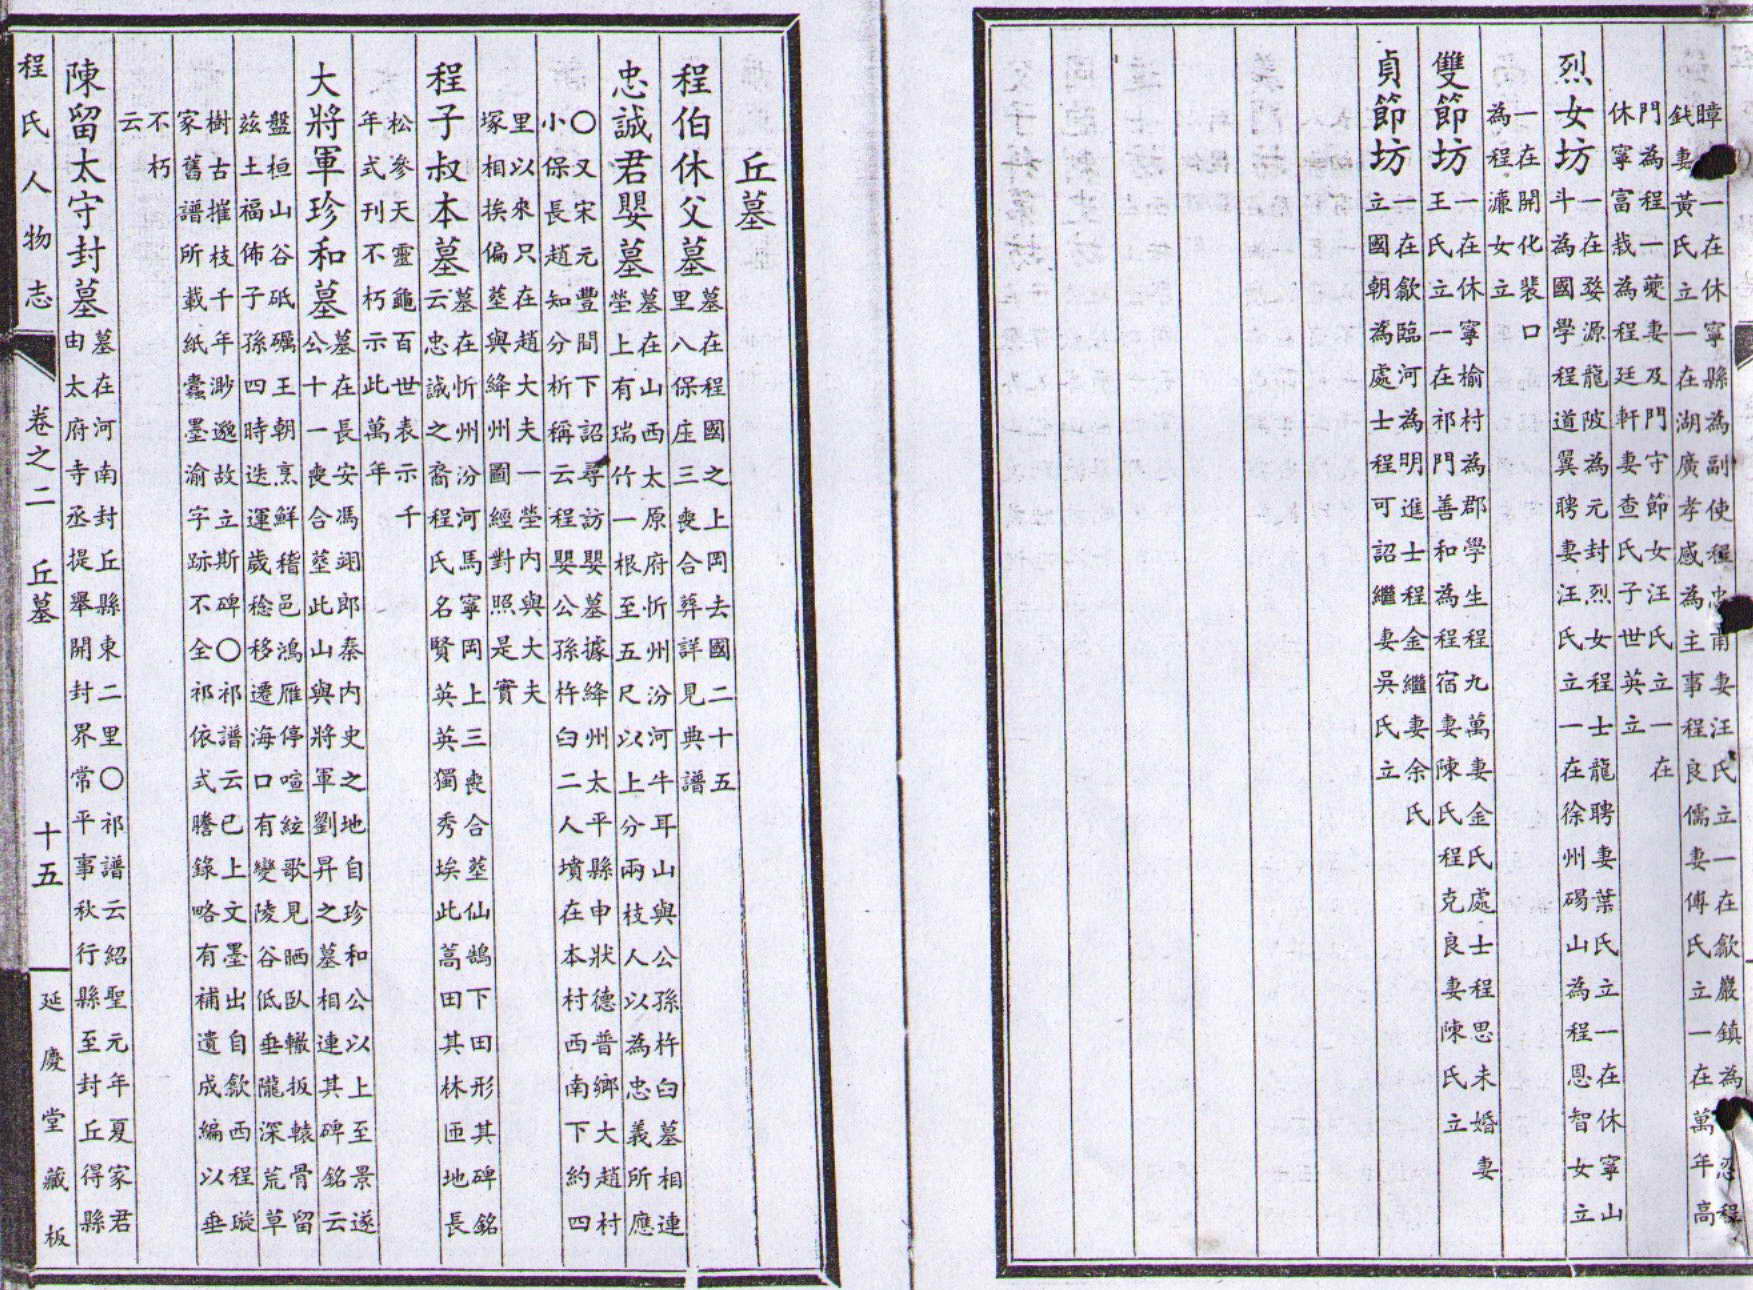 瞕一在休寧縣為副使程忠甫妻汪氏立一在歙巖鎮為忍程
鈛妻黃氏立一在湖廣孝感為主事程良儒妻傅氏立一在萬年高
門為程一夔妻及門守節女汪氏立一在
休寧富栽為程廷軒妻查氏子世英立
烈女坊
一在婺源龍陂為元封烈女程士龍聘妻葉氏立一在休寧山
斗為國學程道翼聘妻汪氏立一在徐州碭山為程恩智女立
一在開化裴口
為程濂女立
雙節坊
一在休寧榆村為郡學生程九萬妻金氏處士程思未婚妻
王氏立一在祁門善和為程宿妻陳氏程克良妻陳氏立
貞節坊
一在歙臨河為明進士程金繼妻余氏
立國朝為處士程可詔繼妻吳氏立
丘墓
程伯休父墓
墓在程國之上岡去國二十五
里八保庄三喪合葬詳見典譜
忠誠君嬰墓
墓在山西太原府忻州汾河牛耳山與公孫杵臼墓相連
塋上有瑞竹一根至五尺以上分兩枝人以為忠義所應
〇又宋元豐間下詔尋訪嬰墓據絳州太平縣申狀德普鄉大趙村
小保長趙知分析稱云程嬰公孫杵臼二人墳在本村西南下約四
里以來只在趙大夫一塋內與大夫
塚相挨偏塟與絳州圖經對照是實
程子叔本墓
墓在忻州汾河馬寧岡上三喪合塟仙鵠下田形其碑銘
云忠誠之裔程氏名賢英英獨秀埃此蒿田其林匝地長
松參天靈龜百世表示千
年式刊不朽示此萬年
大將軍珍和墓
墓在長安馮翊郎秦内史之地自珍和公以上至景遂
公十一喪合塟此山與將軍劉昇之墓相連其碑銘云
盤桓山谷砥礪王朝烹鮮稽邑鴻雁停喧絃歌見晒臥轍扳轅骨留
茲土福佈子孫四時迭運歲稔移遷海口有變陵谷低垂隴深荒草
樹古摧枝千年渺邈故立斯碑〇祁譜云已上文墨出自歙西程璇
家舊譜所載紙蠹墨渝字跡不全祁依式謄錄略有補遺成編以垂
不朽
云
陳留太守封墓
墓在河南封丘縣東二里〇祁譜云紹聖元年夏家君
由太府寺丞提舉開封界常平事秋行縣至封丘得縣
程氏人物志 卷之二 丘墓 十五 延慶堂藏板